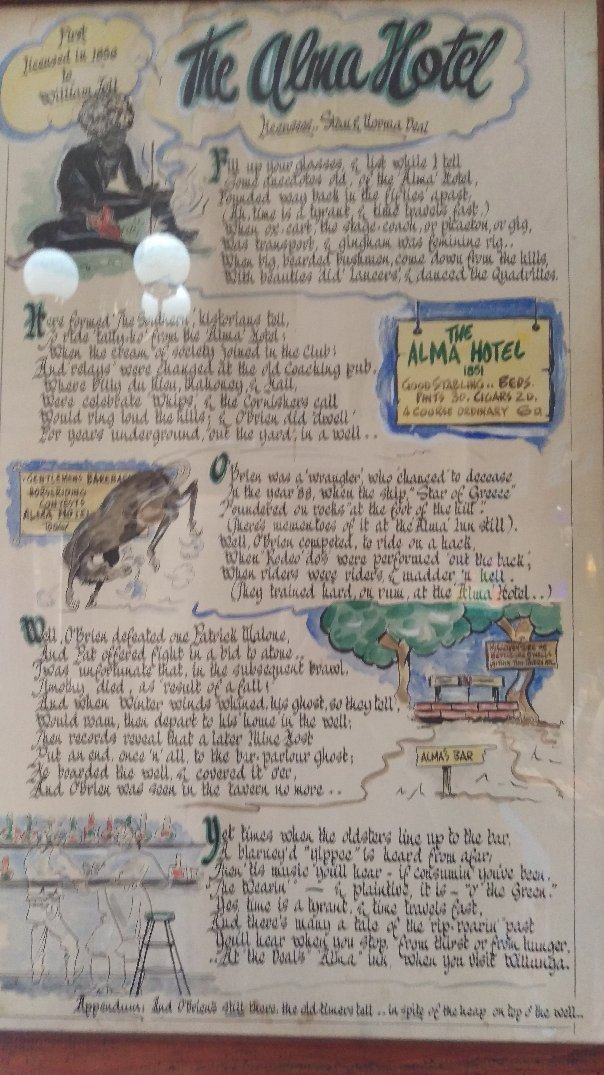 First
licensed in 1856
to
William
The Alma Hotel
Licensees.. Stan & Norma Deal
Fill up your glasses, & list while I tell
Some anecdotes old, of the 'Alma' Hotel,
Founded way back in the fifties apast,
(Ah, time is a tyrant, & time travels fast.)
When ox-cart, the stage-coach, or phaeton, or gig,
Was transport, & gingham was feminine rig..
When big, bearded bushmen, come down from the hills,
With beauties did 'Lancers', & danced the Quadrilles.
Here formed 'The Southern', historians tell,
To ride 'tally-ho' from the 'Alma' Hotel;
When the cream of society joined in the Club;
And relays were changed at the old coaching pub.
Where Billy du Rieu, Mahoney & Hall,
Were celebrate 'Whips', & the Cornishers call
Would ring loud the hills; & O'Brien did 'dwell'
For years underground, 'out the yard', in a well..
THE
ALMA HOTEL
1851
GOOD STABLING.. BEDS.
PINTS 3D. CIGARS 2D.
4 COURSE ORDINARY 6D.
GENTLEMENS BAREBACK
HORSERIDING
CONTESTS
ALMA HOTEL
TODAY
O'Brien was a 'wrangler' who chanced to decease
In the year '88, when the ship, "Star of Greece"
Foundered on rocks 'at the foot of the hill':
(There's mementoes of it at the 'Alma' Inn still).
Well, O'Brien competed, to ride on a hack,
When 'Rodeo' do's were performed 'out the back',
When riders were riders, & madder 'n hell.
(They trained hard, on rum, at the 'Alma' Hotel..)
Well, O'Brien defeated one Patrick Malone,
And Pat offered fight in a bid to atone..
'Twas unfortunate that, in the subsequent brawl,
Timothy died, as result of a fall!
And when Winter winds whined, his ghost, so they tell
Would roam, then depart to his home in the well;
Then records reveal that a later Mine Host
Put an end, once 'n' all, to the bar-parlour ghost;
He boarded the well, & covered it o'er,
And O'Brien was seen in the tavern no more..
ALMA'S BAR
Yet times when the oldsters line up to the bar,
A blarney'd "yippee" is heard from afar;
Then 'tis music you'll hear - if consumin' you've been,
"The Wearin'" — & plaintive, it is - "o' the Green."
Yes, time is a tyrant, & time travels fast,
And there's many a tale of the rip-roarin' past
You'll hear when you stop, from thirst or from hunger,
..At the Deal's "Alma" Inn, when you visit Willunga.
Appendum: And O'Brien's still there, the old-timers tell.. in spite of the heap on top o' the well...